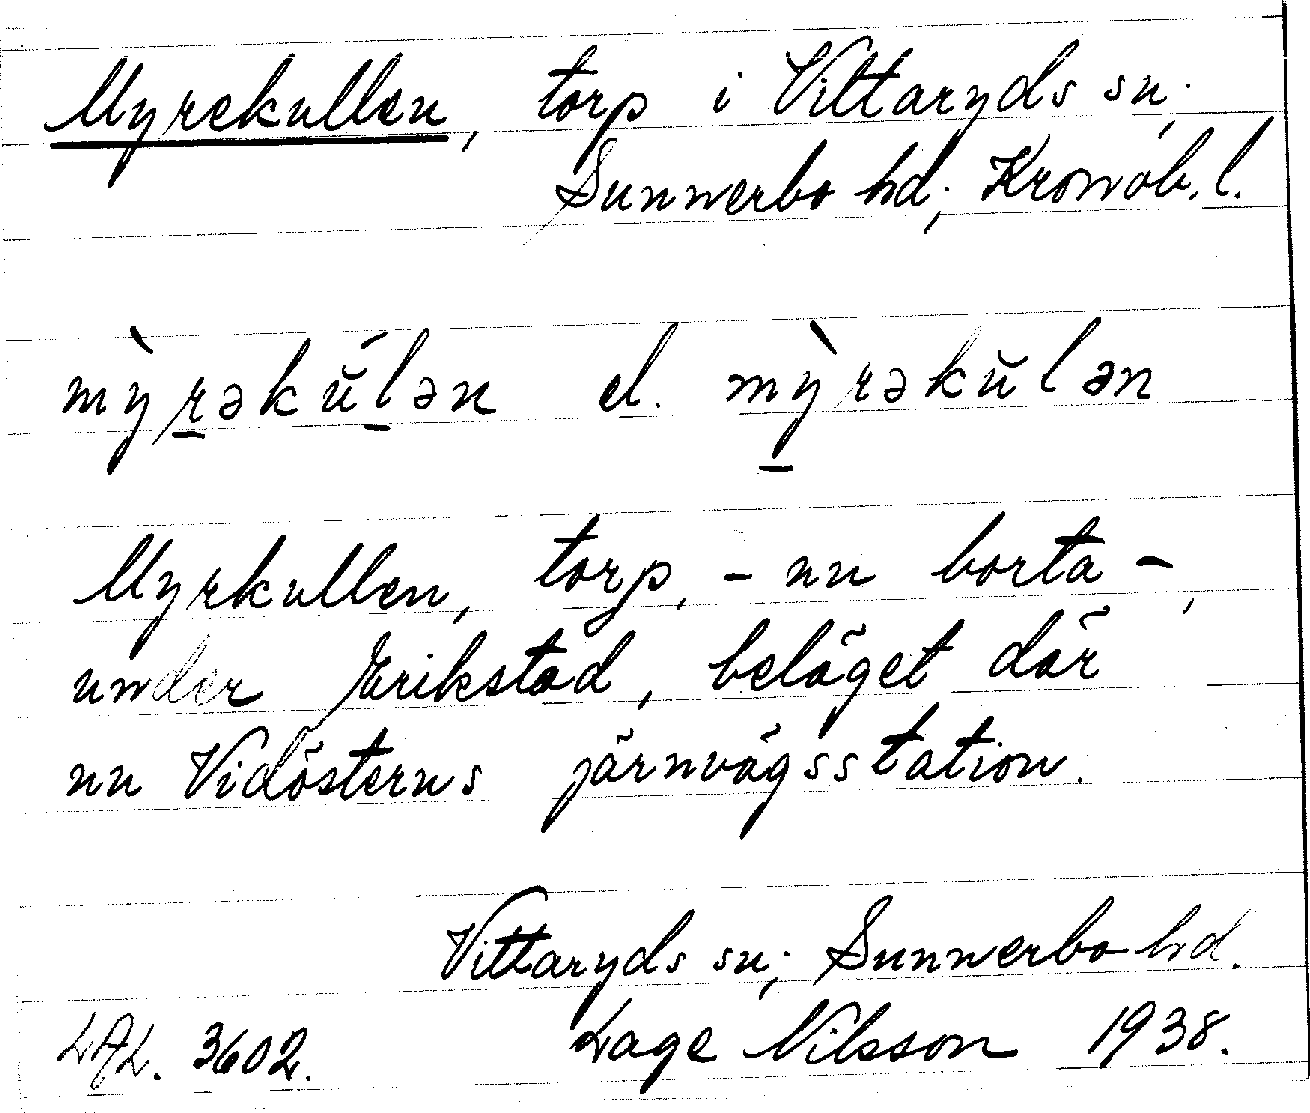 Myrekullen, torp i Vittaryds sn;
Sunnerbo hd; Kronob. l.
my̌̀rəkŭ́lən el. mỳrəkŭlən
Myrkullen, torp, – nu borta –,
under Erikstad, beläget där
nu Vidösterns järnvägsstation.
Vittaryds sn; Sunnerbo hd.
LAL. 3602. Lage Nilsson 1938.